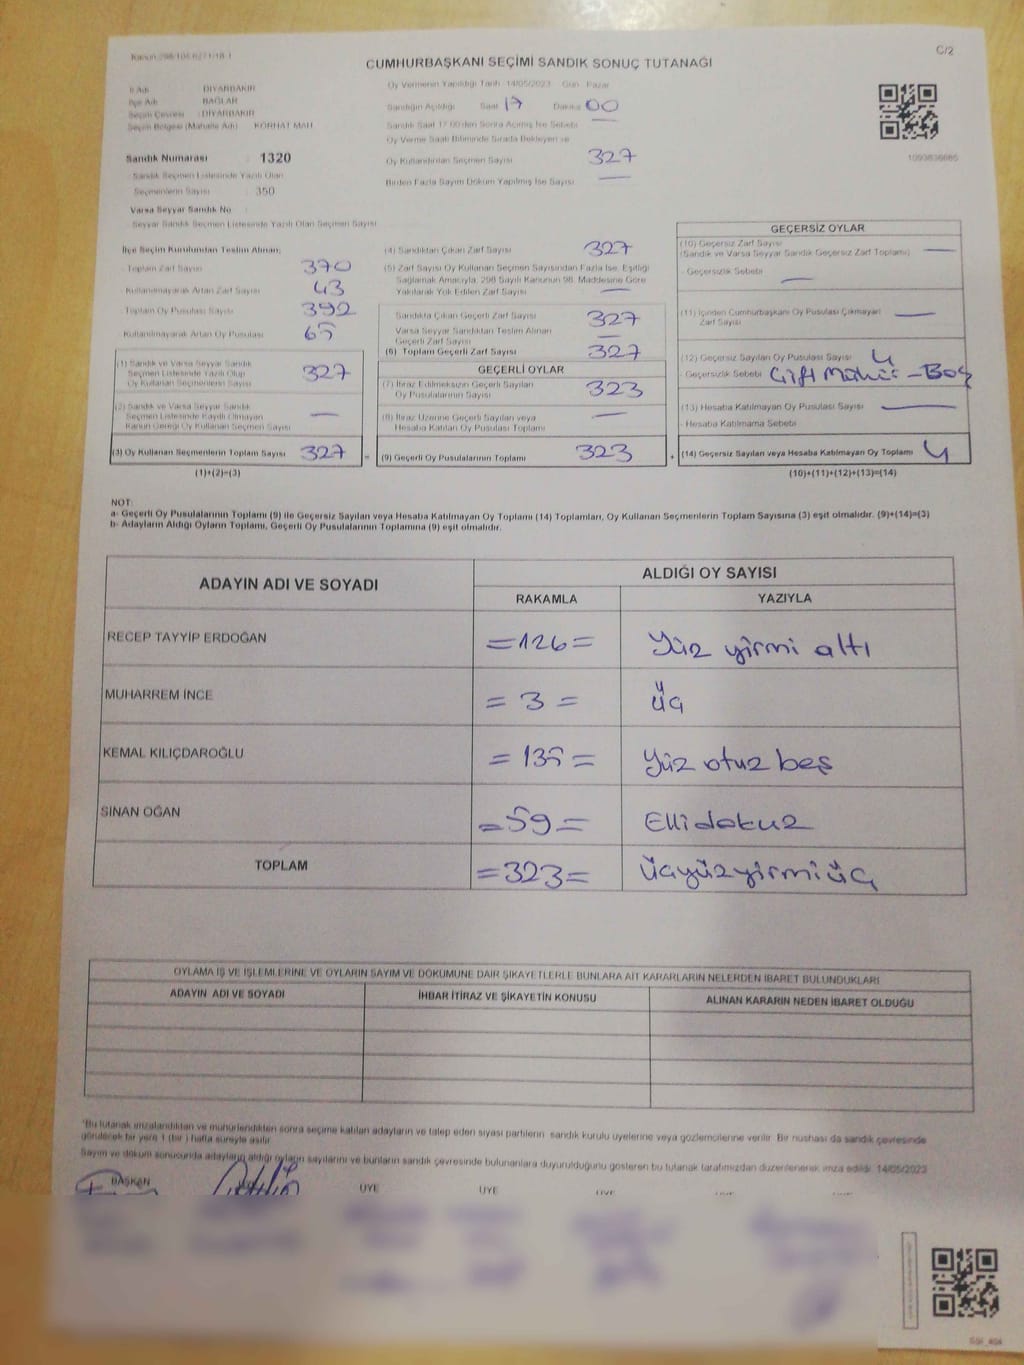 C/2
CUMHURBAŞKANI SEÇİMİ SANDIK SONUÇ TUTANAĞI
İl Adı DİYARBAKIR
İlçe Adı BAĞLAR
Seçim Çevresi : DİYARBAKIR
Seçim Bölgesi (Mahalle Adı) : KÖRHAT MAH
Sandık Numarası 1320
Sandık Seçmen Listesinde Yazılı Olan
Seçmenlerin Sayısı 350
Varsa Seyyar Sandık No
Seyyar Sandık Seçmen Listesinde Yazılı Olan Seçmen Sayısı
Oy Vermenin Yapıldığı Tarih 14/05/2023 Gün Pazar
Sandığın Açıldığı Saat 17 Dakika 00
Sandık Saat 17:00'den Sonra Açılmış İse Sebebi
Oy Verme Saati Bitiminde Sırada Bekleyen ve
Oy Kullandırılan Seçmen Sayısı 327
Birden Fazla Sayım Döküm Yapılmış İse Sayısı —
1093836685
İlçe Seçim Kurulundan Teslim Alınan;
Toplam Zarf Sayısı 370
Kullanılmayarak Artan Zarf Sayısı 43
Toplam Oy Pusulası Sayısı 392
Kullanılmayarak Artan Oy Pusulası 65
(1) Sandık ve Varsa Seyyar Sandık
Seçmen Listesinde Yazılı Olup
Oy Kullanan Seçmenlerin Sayısı 327
(2) Sandık ve Varsa Seyyar Sandık
Seçmen Listesinde Kayıtlı Olmayan
Kanun Gereği Oy Kullanan Seçmen Sayısı —
(3) Oy Kullanan Seçmenlerin Toplam Sayısı 327
(1)+(2)=(3)
(4) Sandıktan Çıkan Zarf Sayısı 327
(5) Zarf Sayısı Oy Kullanan Seçmen Sayısından Fazla İse, Eşitliği
Sağlamak Amacıyla, 298 Sayılı Kanunun 98. Maddesine Göre
Yakılarak Yok Edilen Zarf Sayısı —
Sandıkta Çıkan Geçerli Zarf Sayısı 327
Varsa Seyyar Sandıktan Teslim Alınan
Geçerli Zarf Sayısı —
(6) Toplam Geçerli Zarf Sayısı 327
GEÇERLİ OYLAR
(7) İtiraz Edilmeksizin Geçerli Sayılan
Oy Pusulalarının Sayısı 323
(8) İtiraz Üzerine Geçerli Sayılan veya
Hesaba Katılan Oy Pusulası Toplamı —
(9) Geçerli Oy Pusulalarının Toplamı 323
GEÇERSİZ OYLAR
(10) Geçersiz Zarf Sayısı
(Sandık ve Varsa Seyyar Sandık Geçersiz Zarf Toplamı) —
- Geçersizlik Sebebi —
(11) İçinden Cumhurbaşkanı Oy Pusulası Çıkmayan
Zarf Sayısı —
(12) Geçersiz Sayılan Oy Pusulası Sayısı 4
- Geçersizlik Sebebi Çift Mühür - Boş
(13) Hesaba Katılmayan Oy Pusulası Sayısı —
- Hesaba Katılmama Sebebi
(14) Geçersiz Sayılan veya Hesaba Katılmayan Oy Toplamı 4
(10)+(11)+(12)+(13)=(14)
NOT:
a- Geçerli Oy Pusulalarının Toplamı (9) ile Geçersiz Sayılan veya Hesaba Katılmayan Oy Toplamı (14) Toplamları, Oy Kullanan Seçmenlerin Toplam Sayısına (3) eşit olmalıdır. (9)+(14)=(3)
b- Adayların Aldığı Oyların Toplamı, Geçerli Oy Pusulalarının Toplamına (9) eşit olmalıdır.
ADAYIN ADI VE SOYADI
ALDIĞI OY SAYISI
RAKAMLA YAZIYLA
RECEP TAYYİP ERDOĞAN =126= Yüz yirmi altı
MUHARREM İNCE = 3 = üç
KEMAL KILIÇDAROĞLU = 135 = Yüz otuz beş
SİNAN OĞAN =59= Elli dokuz
TOPLAM =323= Üçyüzyirmiüç
OYLAMA İŞ VE İŞLEMLERİNE VE OYLARIN SAYIM VE DÖKÜMÜNE DAİR ŞİKAYETLERLE BUNLARA AİT KARARLARIN NELERDEN İBARET BULUNDUKLARI
ADAYIN ADI VE SOYADI İHBAR İTİRAZ VE ŞİKAYETİN KONUSU ALINAN KARARIN NEDEN İBARET OLDUĞU
*Bu tutanak imzalandıktan ve mühürlendikten sonra seçime katılan adayların ve talep eden siyasi partilerin sandık kurulu üyelerine veya gözlemcilerine verilir. Bir nüshası da sandık çevresinde
görülecek bir yere 1 (bir) hafta süreyle asılır.
Sayım ve döküm sonucunda adayların aldığı oyların sayılarını ve bunların sandık çevresinde bulunanlara duyurulduğunu gösteren bu tutanak tarafımızdan düzenlenerek imza edildi. 14/05/2023
BAŞKAN ÜYE ÜYE ÜYE